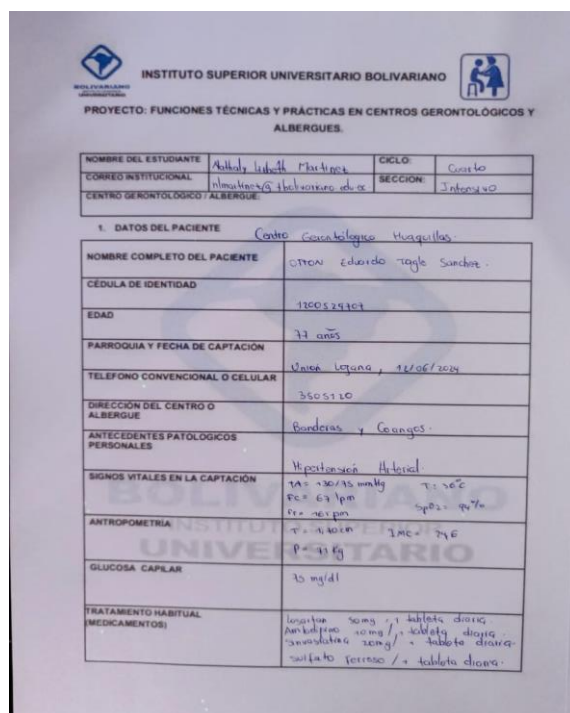 BOLIVARIANO
INSTITUTO SUPERIOR UNIVERSITARIO BOLIVARIANO
PROYECTO: FUNCIONES TÉCNICAS Y PRÁCTICAS EN CENTROS GERONTOLÓGICOS Y
ALBERGUES.
NOMBRE DEL ESTUDIANTE Nathaly Lisbeth Martinez CICLO: Cuarto
CORREO INSTITUCIONAL SECCION: Intensivo
CENTRO GERONTOLÓGICO / ALBERGUE:
1. DATOS DEL PACIENTE Centro Gerontologico Huaquillas.
NOMBRE COMPLETO DEL PACIENTE OTTON Eduardo Tagle Sanchez.
CÉDULA DE IDENTIDAD
EDAD 77 años
PARROQUIA Y FECHA DE CAPTACIÓN Union Lojana, 12/06/2024
TELEFONO CONVENCIONAL O CELULAR 3505120
DIRECCIÓN DEL CENTRO O
ALBERGUE Banderas y Coangos.
ANTECEDENTES PATOLOGICOS
PERSONALES Hipertensión Arterial.
SIGNOS VITALES EN LA CAPTACIÓN TA= 130/75 mmHg T: 36°C
Fc= 67 lpm SpO2= 94%
Fr= 16 rpm
ANTROPOMETRÍA T= 1,70 cm IMC=
P= Kg
GLUCOSA CAPILAR 75 mg/dl
TRATAMIENTO HABITUAL
(MEDICAMENTOS) Losartan 50mg 1 tableta diaria
10mg / 1 tableta diaria.
20mg / 1 tableta diaria.
sulfato ferroso / 1 tableta diaria.
BOLIVARIANO
INSTITUTO SUPERIOR
UNIVERSITARIO